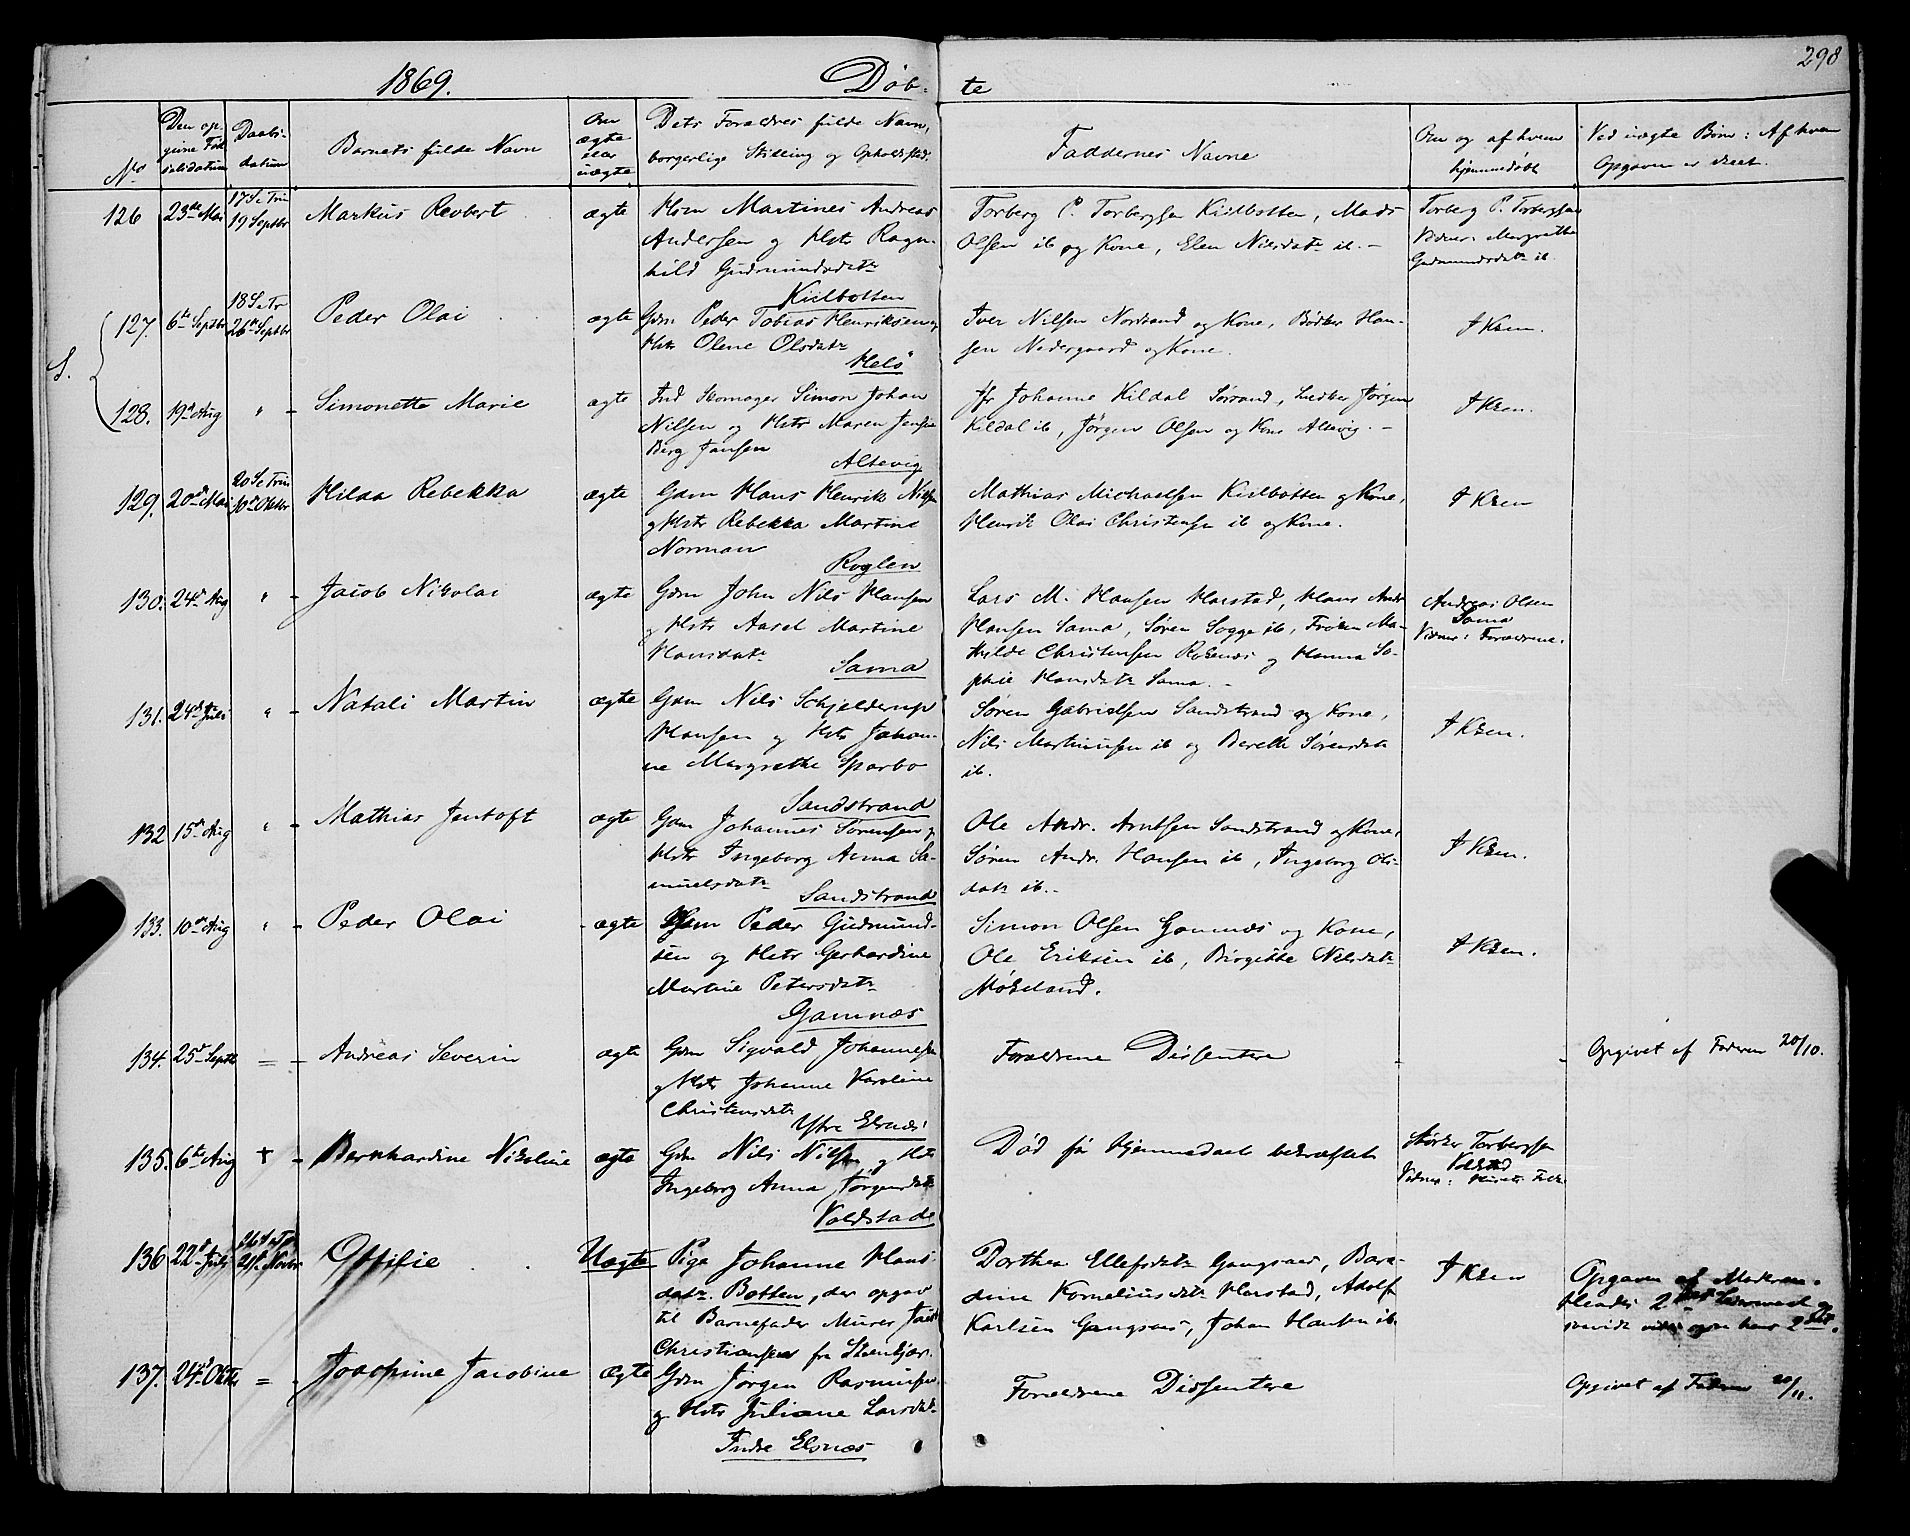 298
1869. Døb- te
No
Den op-
givne Fød-
selsdatum
Daabs-
datum
Barnets fulde Navn
Om
ægte
eller
uægte
Dets Forældres fulde Navn,
borgerlige Stilling og Opholdssted.
Faddernes Navne
Om og af hvem
hjemmedøbt
Ved uægte Børn: Af hvem
Opgaven er skeet.
126 23de Mai 17 S e Trin
19 Septbr Markus Revbert ægte Hsm Martines Andreas
Andersen og Hstr Ragn-
hild Gudmundsdatr
Kiilbotten
Torberg P. Torbergsen Kiilbotten, Mads
Olsen ib og Kone, Elen Nilsdatr ib. -
Torberg P. Torbergsen
Vidner: Margrethe
Gudmundsdatr ib.
S.
127. 6te Septbr 18 S e Tr
26de Septbr Peder Olai ægte Gdm Peder Tobias Henriksen og
Hstr Olene Olsdatr
Helø
Iver Nilsen Nordsand og Kone, Bødker Han-
sen Nedergaard og Kone.
I Ksen.
128. 19de Aug " - Simonette Marie ægte Ind Skomager Simon Johan
Nilsen og Hstr Maren
Berg Jansen
Altevig
Jfr Johanne Kildal Sørsand, Jørgen
Kildal ib, Jørgen Olsen og Kone Altevig. -
I Ksen.
129. 20de Mai 20 S e Trin
10de Oktbr Hilda Rebekka ægte Gdm Hans Henrik Nilsen
og Hstr Rebekka Martine
Norman
Roglen
Mathias Michaelsen Kiilbotten og Kone,
Henrik Olai Christensen ib og Kone.
I Ksen
130. 24de Aug " - Jacob Nikolai ægte Gdm John Nils Hansen
og Hstr Aasel Martine
Hansdatr
Sama
Lars M. Hansen Harstad, Hans Andr
Hansen Sama, Søren Sogge ib, Frøken Ma-
thilde Christensen Rokenæs og Hanna So-
phie Hansdatr Sama. -
Andreas Olsen
Sama
Vidner: Forældrene.
131. 24de Juli " - Natali Martin ægte Gdm Nils Schjelderup
Hansen og Hstr Johan-
ne Margrethe Sparbo
Sandstrand
Søren Gabrielsen Sandstrand og Kone,
Nils Martinusen ib og Berette Sørensdatr
ib.
I Ksen.
132 15de Aug " - Mathias Jentoft ægte Gdm Johannes Sørensen og
Hstr Ingeborg Anna Sa-
muelsdatr
Sandstrand
Ole Andr. Arntsen Sandstrand og Kone,
Søren Andr. Hansen ib, Ingeborg Ols-
datr ib. -
I Ksen.
133. 10de Aug " - Peder Olai ægte Hsm Peder Gudmund-
sen og Hstr Gerhardine
Martine Petersdatr
Gamnæs
Simon Olsen Gamnæs og Kone,
Ole Eriksen ib, Birgitte Nilsdatr
Møkeland.
I Ksen.
134. 25de Septbr = - Andreas Severin ægte Gdm Sigvald Johannesen
og Hstr Johanne Karoline
Christensdatr
Ytre Elsnæs
Forældrene Dissentere
-
- Opgivet af Faderen 20/10.
135. 6te Aug † - Bernhardine Nikoline ægte Gdm Nils Nilsen og Hstr
Ingeborg Anna Jørgensdatr
Voldstade
Død før Hjemmedaab bekræftet
Størker Torbergsen
Voldstad
Vidner: Husets Folk
136 22de Juli 26 S e Tr
21de Novbr Ottilie Uægte Pige Johanne Hans-
datr. Botten, der opgav
til Barnefader Murer
Christiansen fra Steenkjær.
Dorthea Ellefsdatr Gangsaas, Bara-
dine Korneliusdatr Harstad, Adolf
Karlsen Gangsaas, Johan Hansen ib
I Ksen
Opgaven af Moderen.
Hendes 2det Leiermaal og
saavidt vides ogsaa hans 2det.
137. 24de Oktbr = - Joachime Jacobine Ægte Gdm Jørgen Rasmusen
og Hstr Juliane Larsdatr
Indre Elsnæs
Forældrene Dissentere
Opgivet af Faderen 20/11.